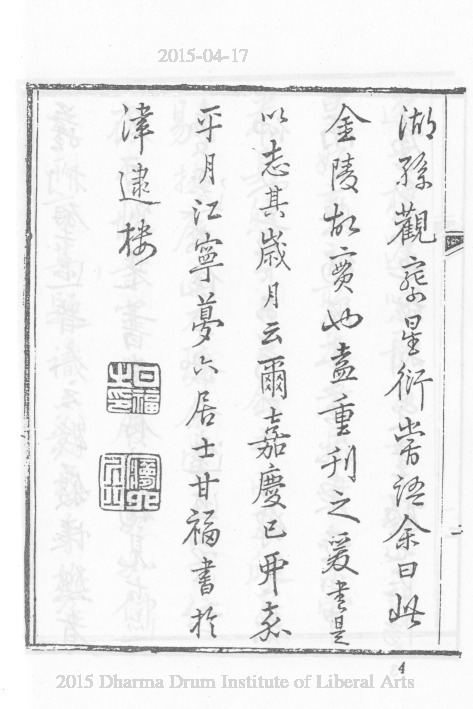 2015-04-17
湖孫觀察星衍嘗語余曰此
金陵故實也盍重刊之爰書是
以志其歲月云爾嘉慶己卯嘉
平月江寧夢六居士甘福書於
津逮樓
4
2015 Dharma Drum Institute of Liberal Arts